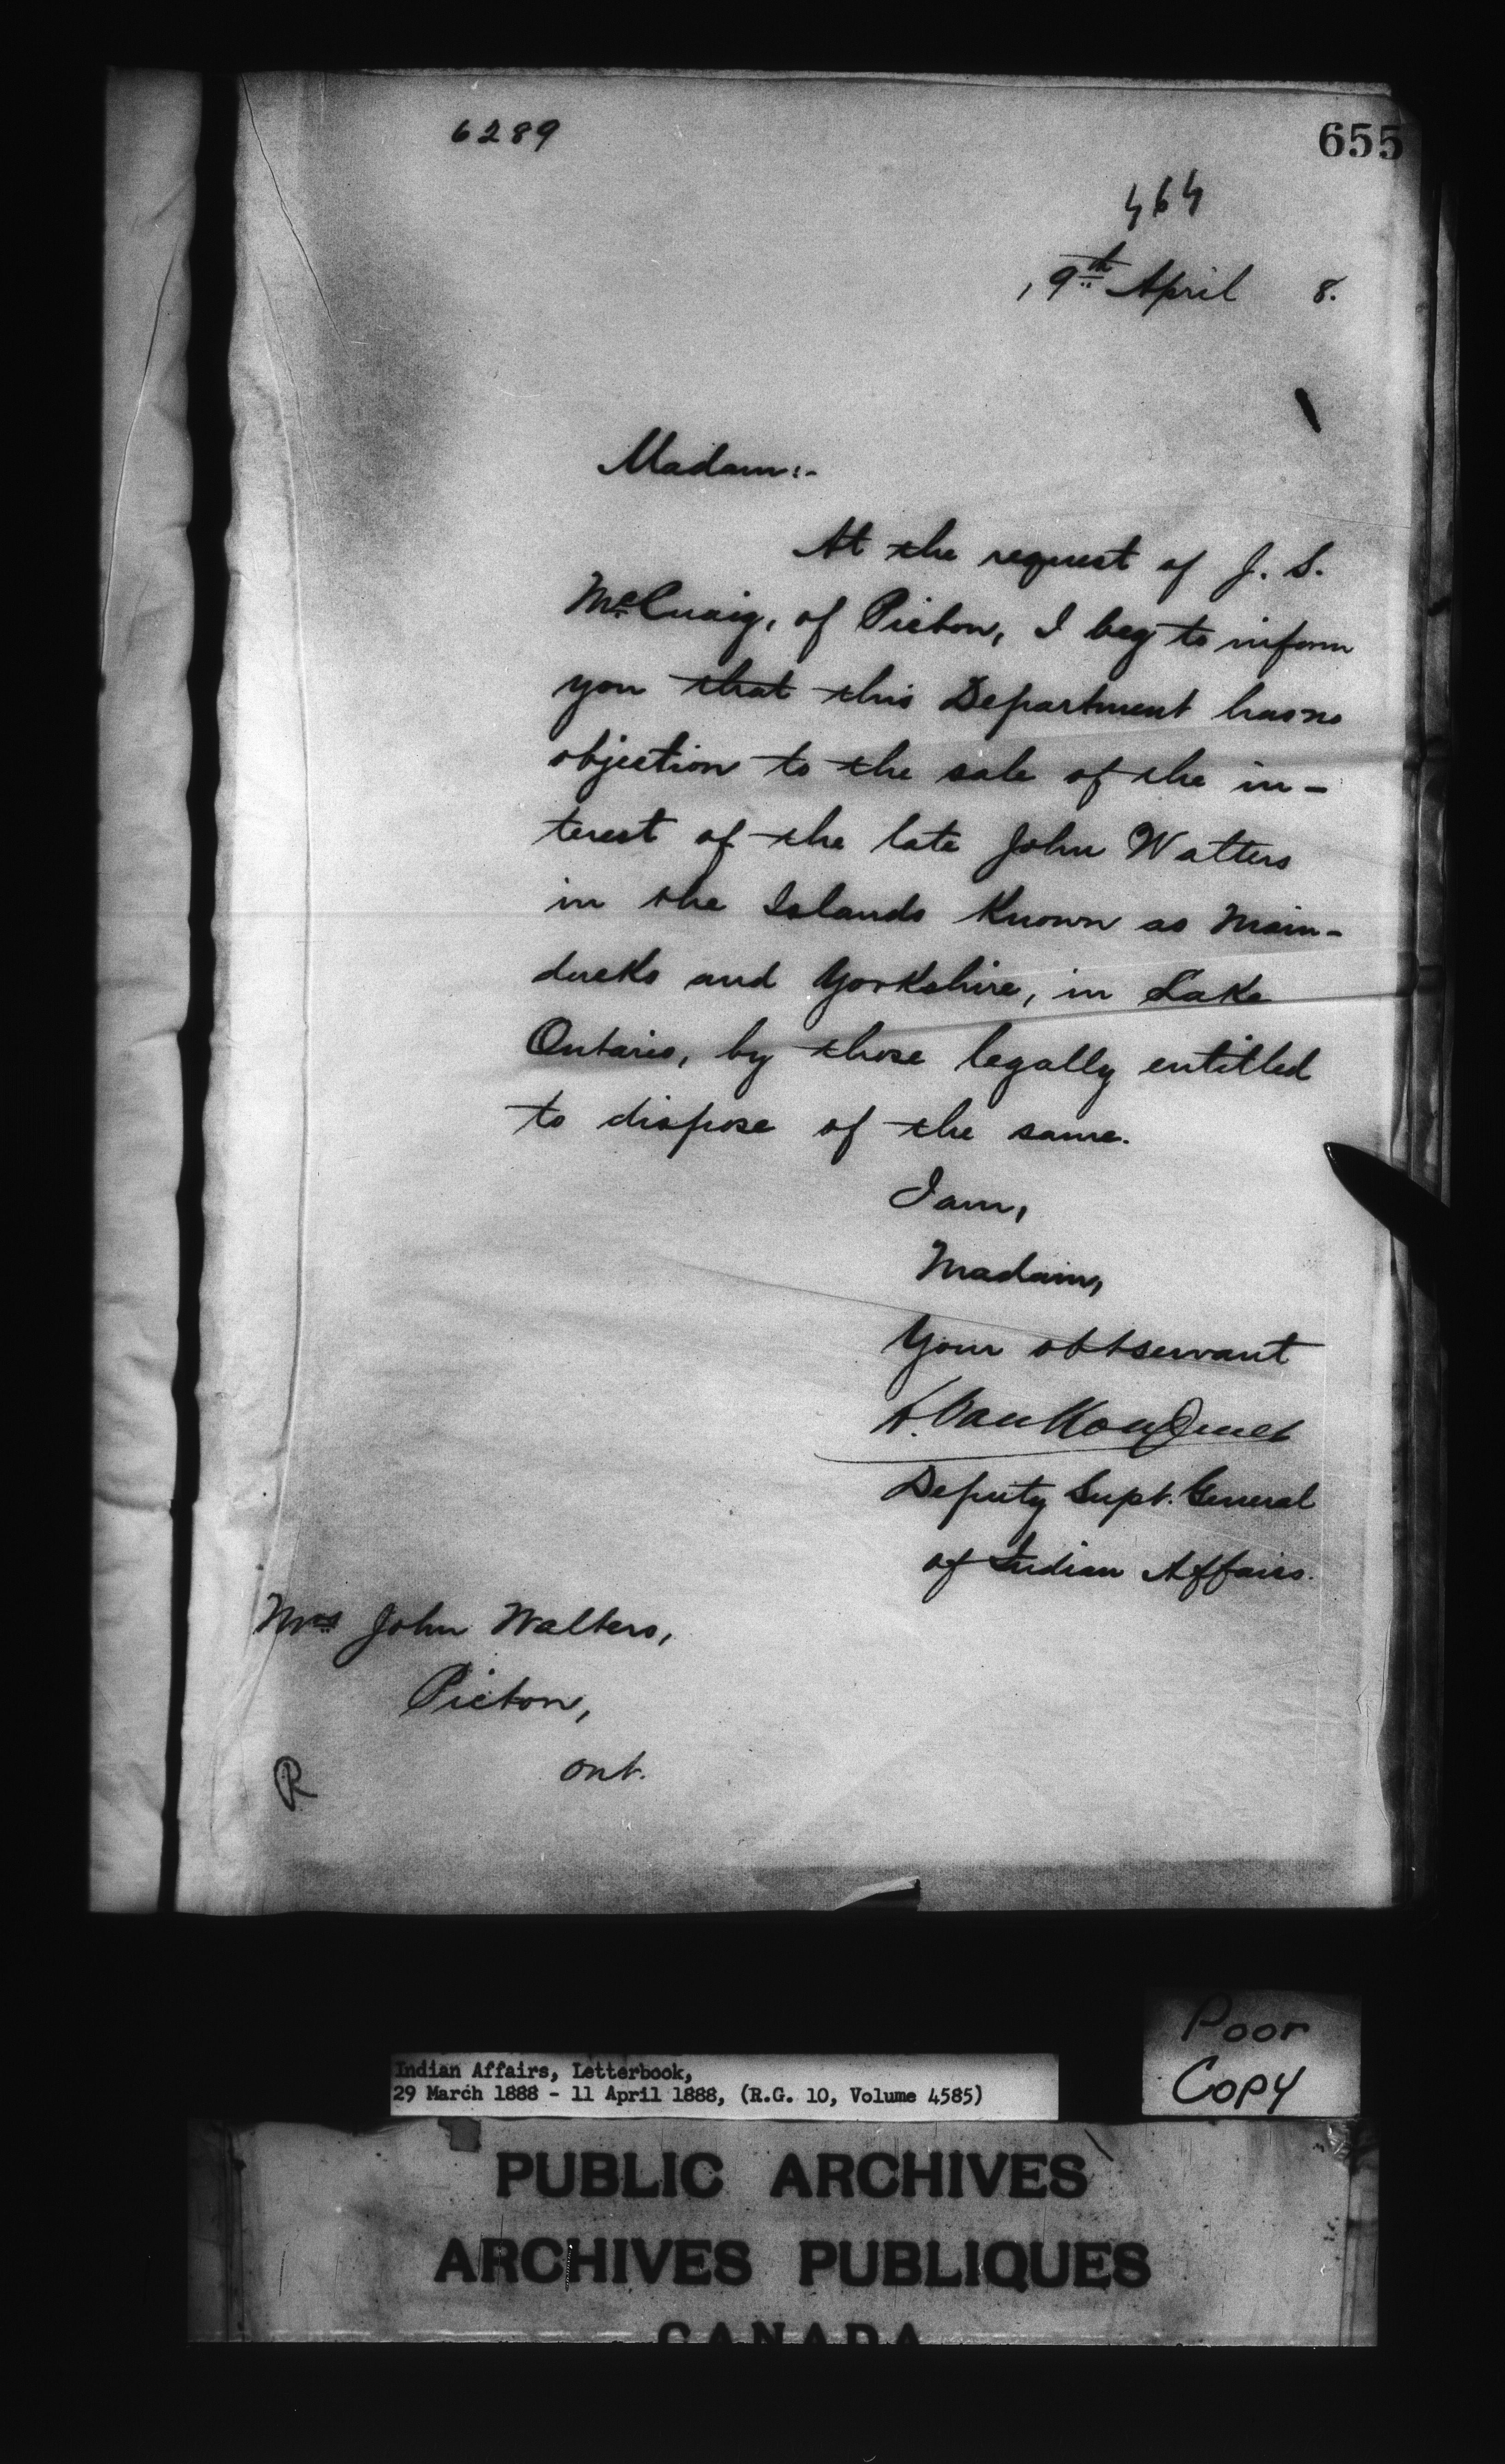 6289
655
464
, 9th April 8.
Madam:-
At the request of J. S.
McCuaig, of Picton, I beg to inform
you that this Department has no
objection to the sale of the in-
terest of the late John Watters
in the Islands Known as Main-
ducks and Yorkshire, in Lake
Ontario, by those legally entitled
to dispose of the same.
I am,
Madam,
Your obt servant
L. VanKoughnet
Deputy Supt. General
of Indian Affairs.
Mrs John Walters,
Picton,
Ont.
R
Poor
Copy
Indian Affairs, Letterbook,
29 March 1888 - 11 April 1888, (R.G. 10, Volume 4585)
PUBLIC ARCHIVES
ARCHIVES PUBLIQUES
CANADA